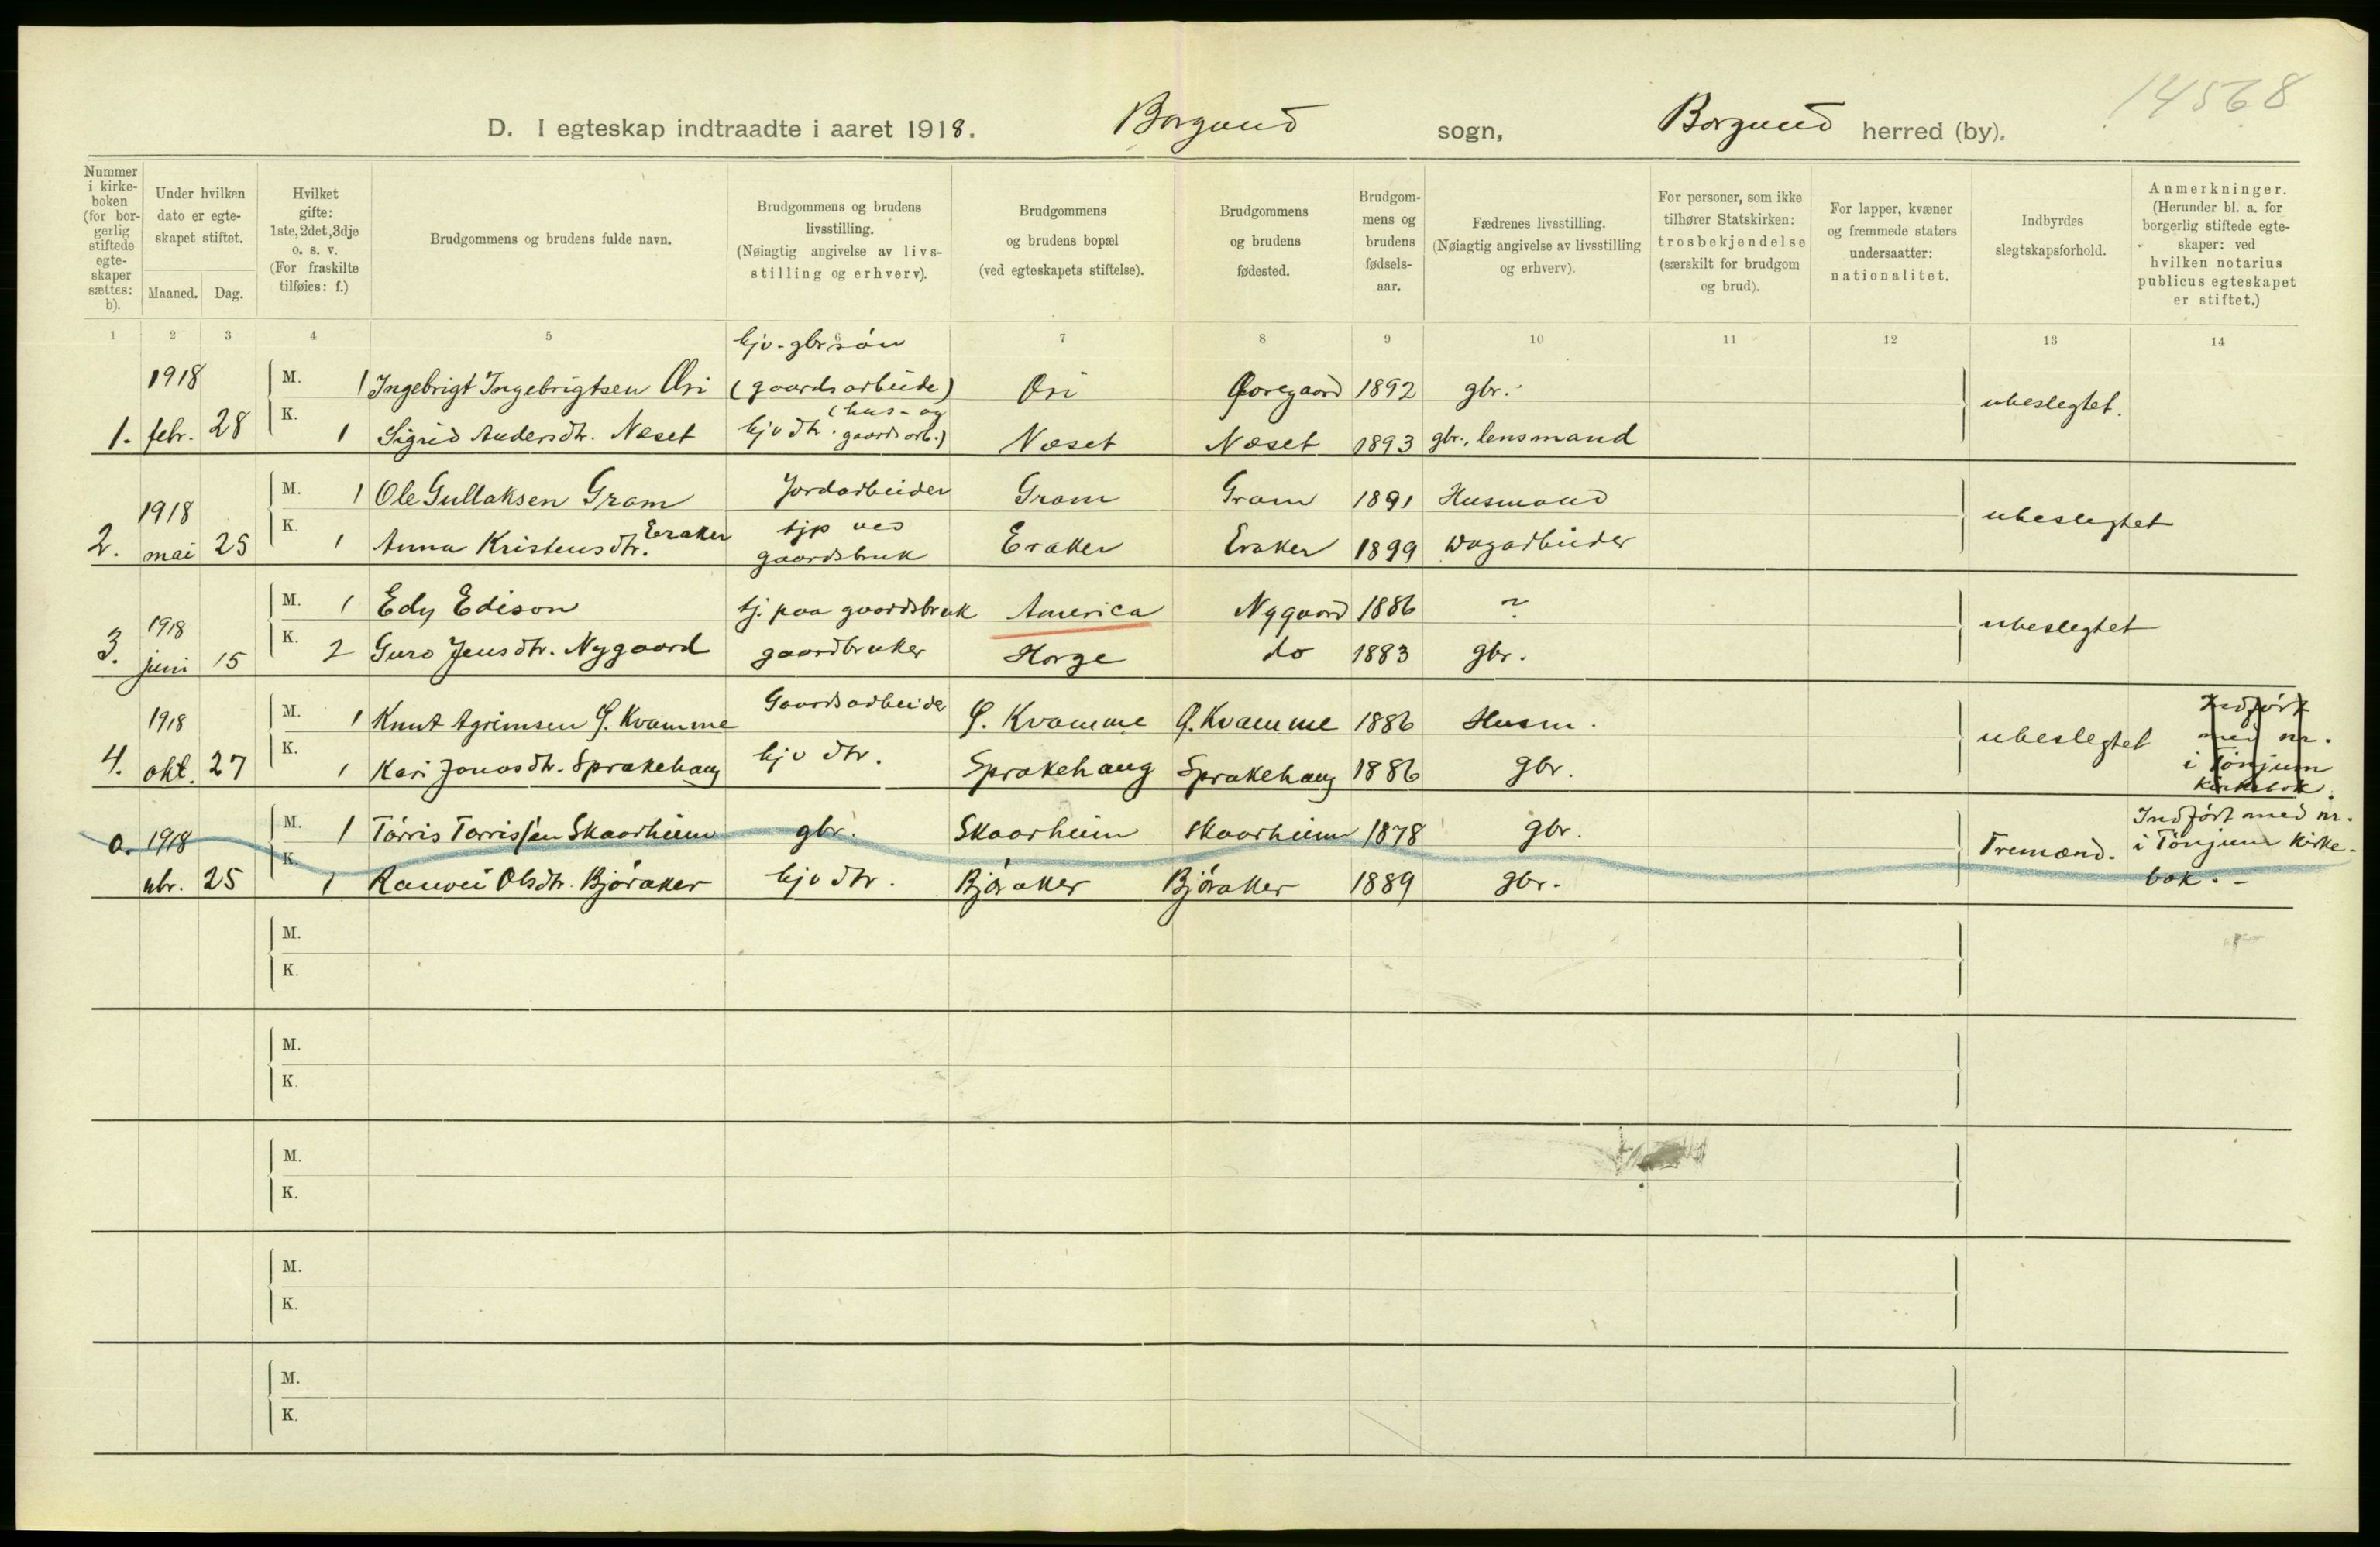 14568
D. I egteskap indtraadte i aaret 1918. Borgund sogn, Borgund herred (by).
Nummer i kirke- boken (for bor- gerlig stiftede egte- skaper sættes: b).
Under hvilken dato er egte- skapet stiftet.
Maaned. Dag.
Hvilket gifte: 1ste, 2det, 3dje o. s. v. (For fraskilte tilføies: f.)
Brudgommens og brudens fulde navn.
Brudgommens og brudens livsstilling. (Nøiagtig angivelse av livs- stilling og erhverv).
Brudgommens og brudens bopæl (ved egteskapets stiftelse).
Brudgommens og brudens fødested.
Brudgom- mens og brudens fødsels- aar.
Fædrenes livsstilling. (Nøiagtig angivelse av livsstilling og erhverv).
For personer, som ikke tilhører Statskirken: trosbekjendelse (særskilt for brudgom og brud).
For lapper, kvæner og fremmede staters undersaatter: nationalitet.
Indbyrdes slegtskapsforhold.
Anmerkninger. (Herunder bl. a. for borgerlig stiftede egte- skaper: ved hvilken notarius publicus egteskapet er stiftet.)
1 2 3 4 5 6 7 8 9 10 11 12 13 14
hjv. gbr. søn
1918 M. 1 Ingebrigt Ingebrigtsen Øri (gaardsarbeide) Øri 1892 gbr.
1. febr. 28 K. 1 Sigrid Andersdtr. Næset hjv dtr. (hus- og gaardsarb.) Næset Næset 1893 gbr., lensmand ubeslegtet.
1918 M. 1 Ole Gullaksen Gram Jordarbeider Gram Gram 1891 Husmand
2. mai 25 K. 1 Anna Kristensdtr. Eraker tjp ved gaardsbruk Eraker Eraker 1899 ubeslegtet
1918 M. 1 Edy Edison tj. paa gaardsbruk America Nygaard 1886 ?
3. juni 15 K. 2 Guro Jensdtr. Nygaard gaardbruker Horge do 1883 gbr. ubeslegtet
1918 M. 1 Knut Agrimsen G. Kvamme Gaardsarbeider G. Kvamme G. Kvamme 1886 Husm.
4. okt. 27 K. 1 Kari Jonasdtr. Sprakehaug hjv dtr. Sprakehaug Sprakehaug 1886 gbr. ubeslegtet
Indført
med nr.
i Tönjum
Kirkebok.
0. 1918 M. 1 Tørris Torrissen Skaarheim gbr. Skaarheim Skaarheim 1878 gbr.
nbr. 25 K. 1 Ranvei Olsdtr. Bjøraker hjv dtr. Bjøraker Bjøraker 1889 gbr. Tremænd.
Indført med nr.
i Tönjum Kirke-
bok. -
M.
K.
M.
K.
M.
K.
M.
K.
M.
K.